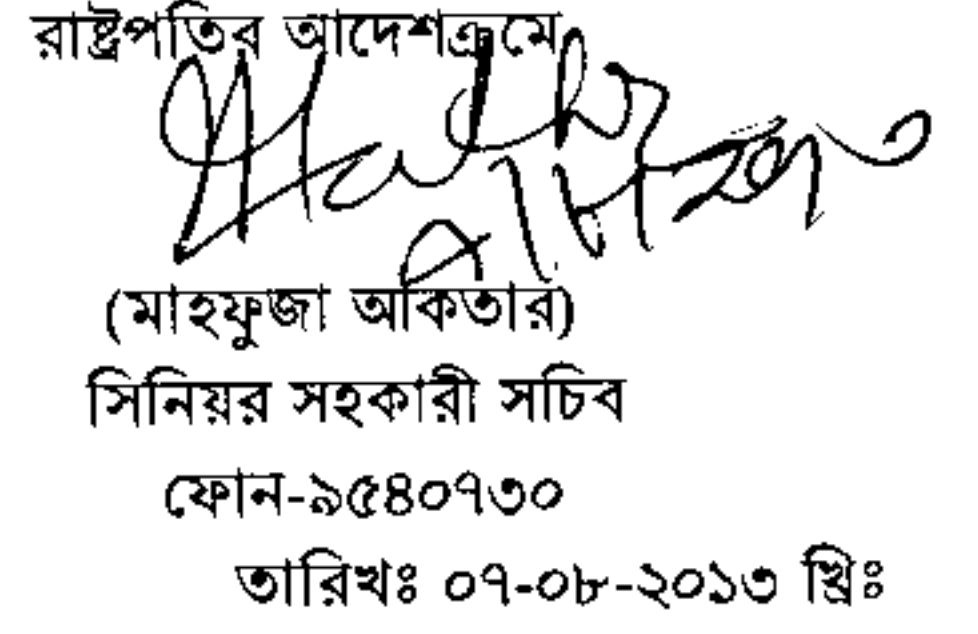 রাষ্ট্রপতির আদেশক্রমে
(মাহফুজা আকতার)
সিনিয়র সহকারী সচিব
ফোন-৯৫৪০৭৩০
তারিখঃ ০৭-০৮-২০১৩ খ্রিঃ